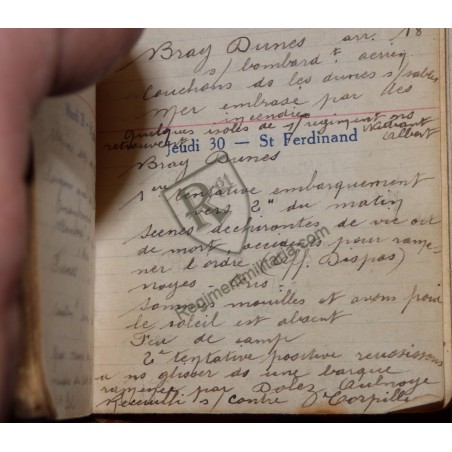 Bray Dunes arr. 18
s/ bombardt aérien
Couchons ds les dunes s/ sables
Mer embrasé par des
incendies
Quelques isolés de s/ regiment ns
retrouvent Albert
Jeudi 30 — St Ferdinand
Bray Dunes
1ere tentative embarquement
vers 2h du matin
scenes déchirantes de vie ou
de mort, accidents pour rame-
ner l'ordre (Off. Dispos)
noyes
sommes mouilles et avons froid
le soleil est absent
Feu de camp
2e tentative positive reussissons
a ns glisser ds une barque
ramenée par Dolez Aulnoye
Recueilli s/ contre Torpilleur
Rgt
Regimentmilitaria.com